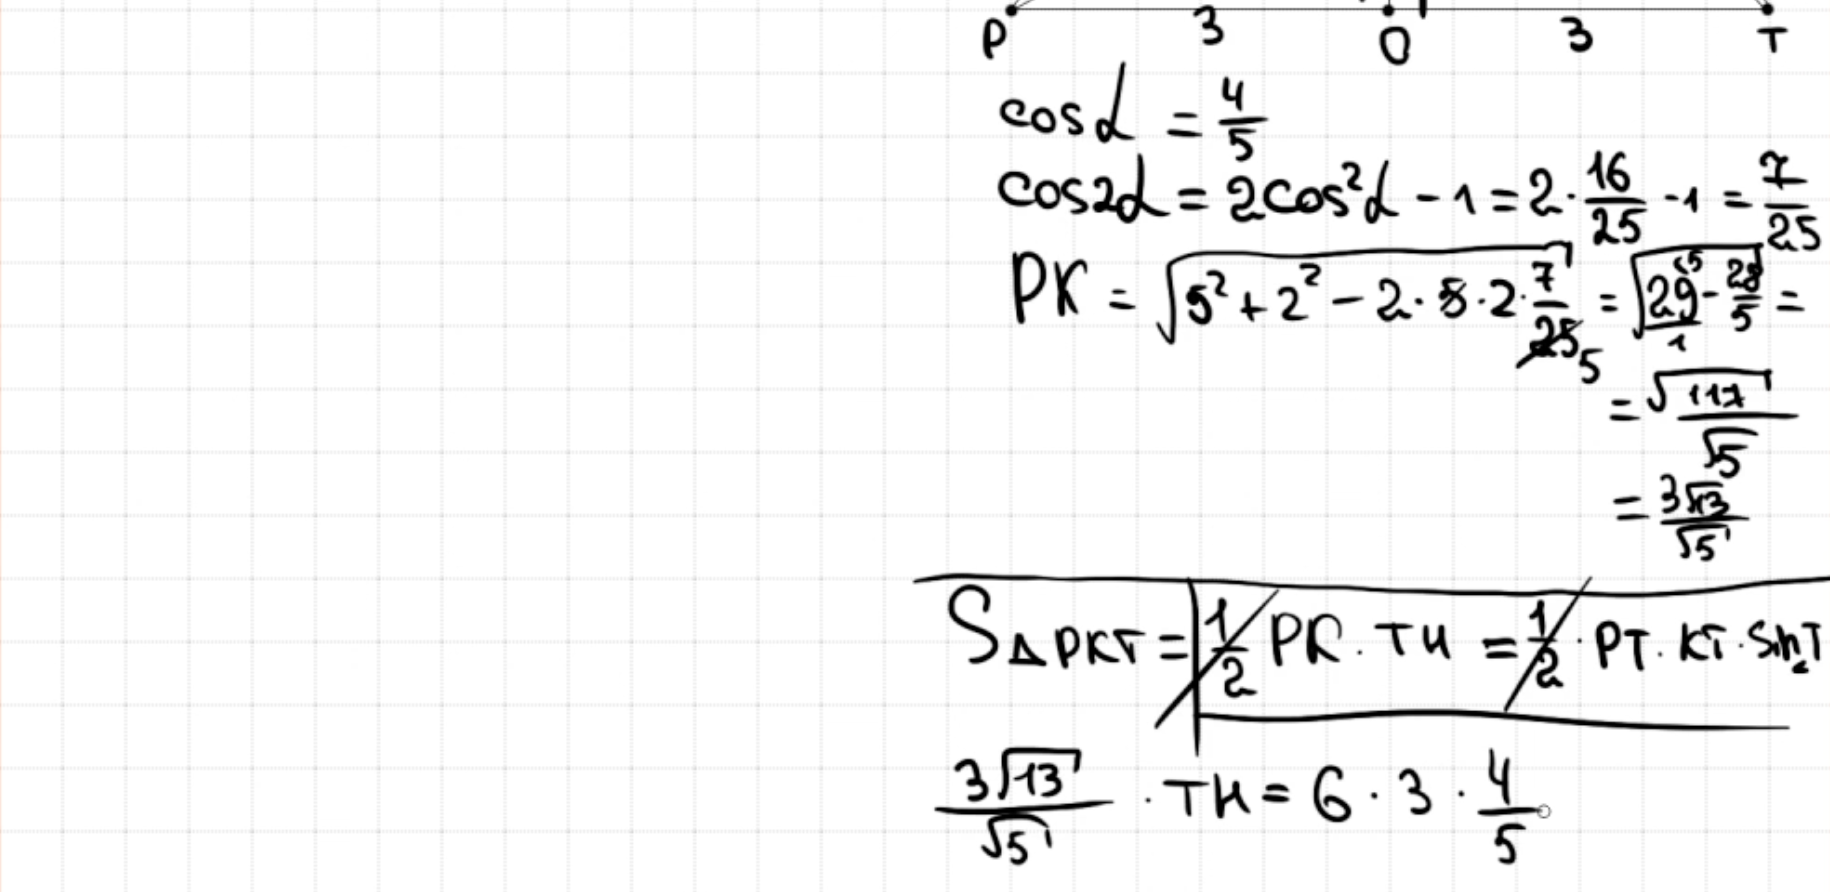 P 3 O 3 T
cos α = 4/5
cos2α = 2cos²α - 1 = 2 · 16/25 - 1 = 7/25
PK = √(5² + 2² - 2 · 5 · 2 · 7/25 5) = √(29/1 - 28/5) =
= √117/√5
= 3√13/√5
S△PKT = 1/2 PK · TH = 1/2 · PT · KT · sin T
3√13/√5 · TH = 6 · 3 · 4/5